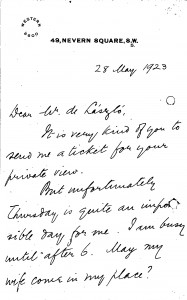 WESTERN
8800
49, NEVERN SQUARE, S.W.5.
28 May 1923
Dear Mr. de László,
It is very kind of you to
send me a ticket for your
private view.
But unfortunately
Thursday is quite an impos-
sible day, for me. I am busy
until after 6. May my
wife come in my place?